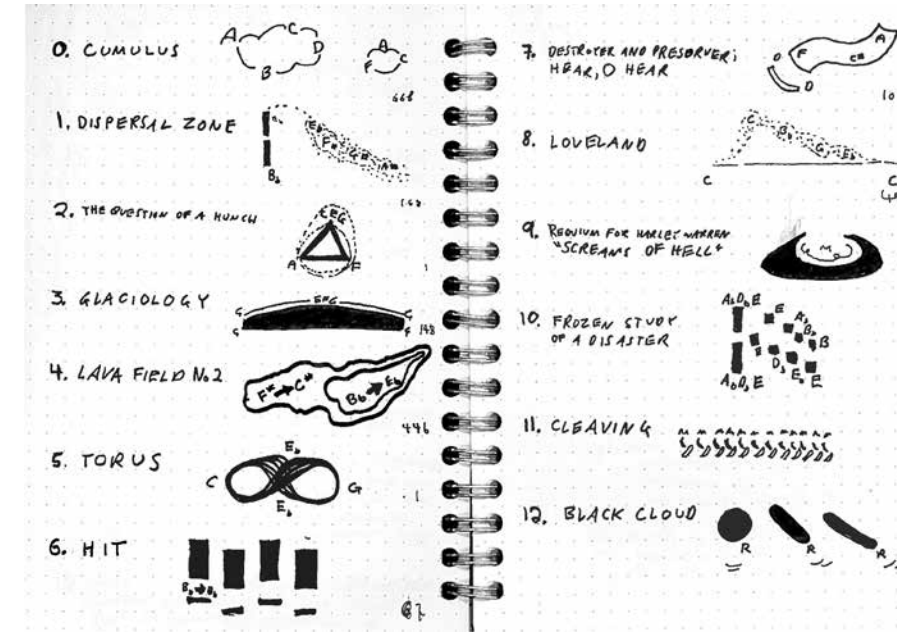 0. CUMULUS
A C D B
A F C
668
1. DISPERSAL ZONE
Bb Eb F# C#
2. THE QUESTION OF A HUNCH
C E G
A F
3. GLACIOLOGY
E G
G G
G F
148
4. LAVA FIELD No2
F# C# Bb Eb
446
5. TORUS
Eb
C G
Eb
1
6. HIT
Bb Bb
7. DESTROYER AND PRESERVER;
HEAR, O HEAR
D F C# A
D
10
8. LOVELAND
C Bb G Eb
C C
9. REQUIUM FOR HARLEY WARREN
"SCREAMS OF HELL"
M
10. FROZEN STUDY
OF A DISASTER
AbDbE E Ab Bb B
Db Eb E
AbDbE
11. CLEAVING
12. BLACK CLOUD
R R R